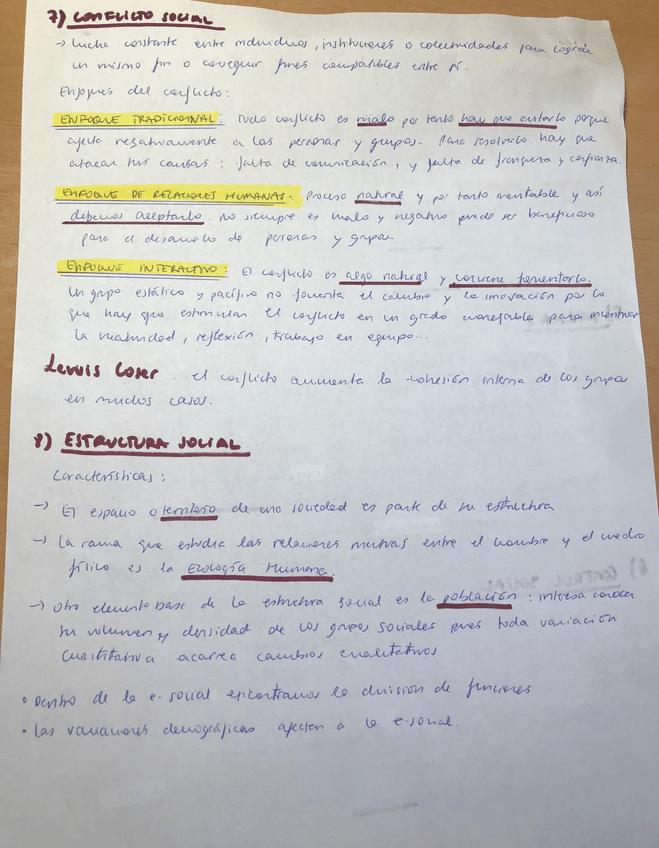 7) CONFLICTO SOCIAL
→ Lucha constante entre individuos, instituciones o colectividades para lograr
un mismo fin o conseguir fines compatibles entre sí.
Enfoques del conflicto:
ENFOQUE TRADICIONAL: Todo conflicto es malo por tanto hay que evitarlo porque
afecta negativamente a las personas y grupos. Para resolverlo hay que
atacar sus causas: falta de comunicación, y falta de franqueza y confianza.
ENFOQUE DE RELACIONES HUMANAS: Proceso natural y por tanto inevitable y así
debemos aceptarlo. No siempre es malo y negativo puede ser beneficioso
para el desarrollo de personas y grupos.
ENFOQUE INTERACTIVO: El conflicto es algo natural y conviene fomentarlo.
Un grupo estático y pacífico no fomenta el cambio y la innovación por lo
que hay que estimular el conflicto en un grado manejable para incentivar
la creatividad, reflexión, trabajo en equipo...
Lewis Coser: el conflicto aumenta la cohesión interna de los grupos
en muchos casos.
8) ESTRUCTURA SOCIAL
Características:
→ El espacio o territorio de una sociedad es parte de su estructura
→ La rama que estudia las relaciones mutuas entre el hombre y el medio
físico es la Ecología Humana.
→ Otro elemento base de la estructura social es la población: interesa conocer
su volumen y densidad de los grupos sociales pues toda variación
cuantitativa acarrea cambios cualitativos
• Dentro de la e. social encontramos la división de funciones
• Las variaciones demográficas afectan a la e-social.